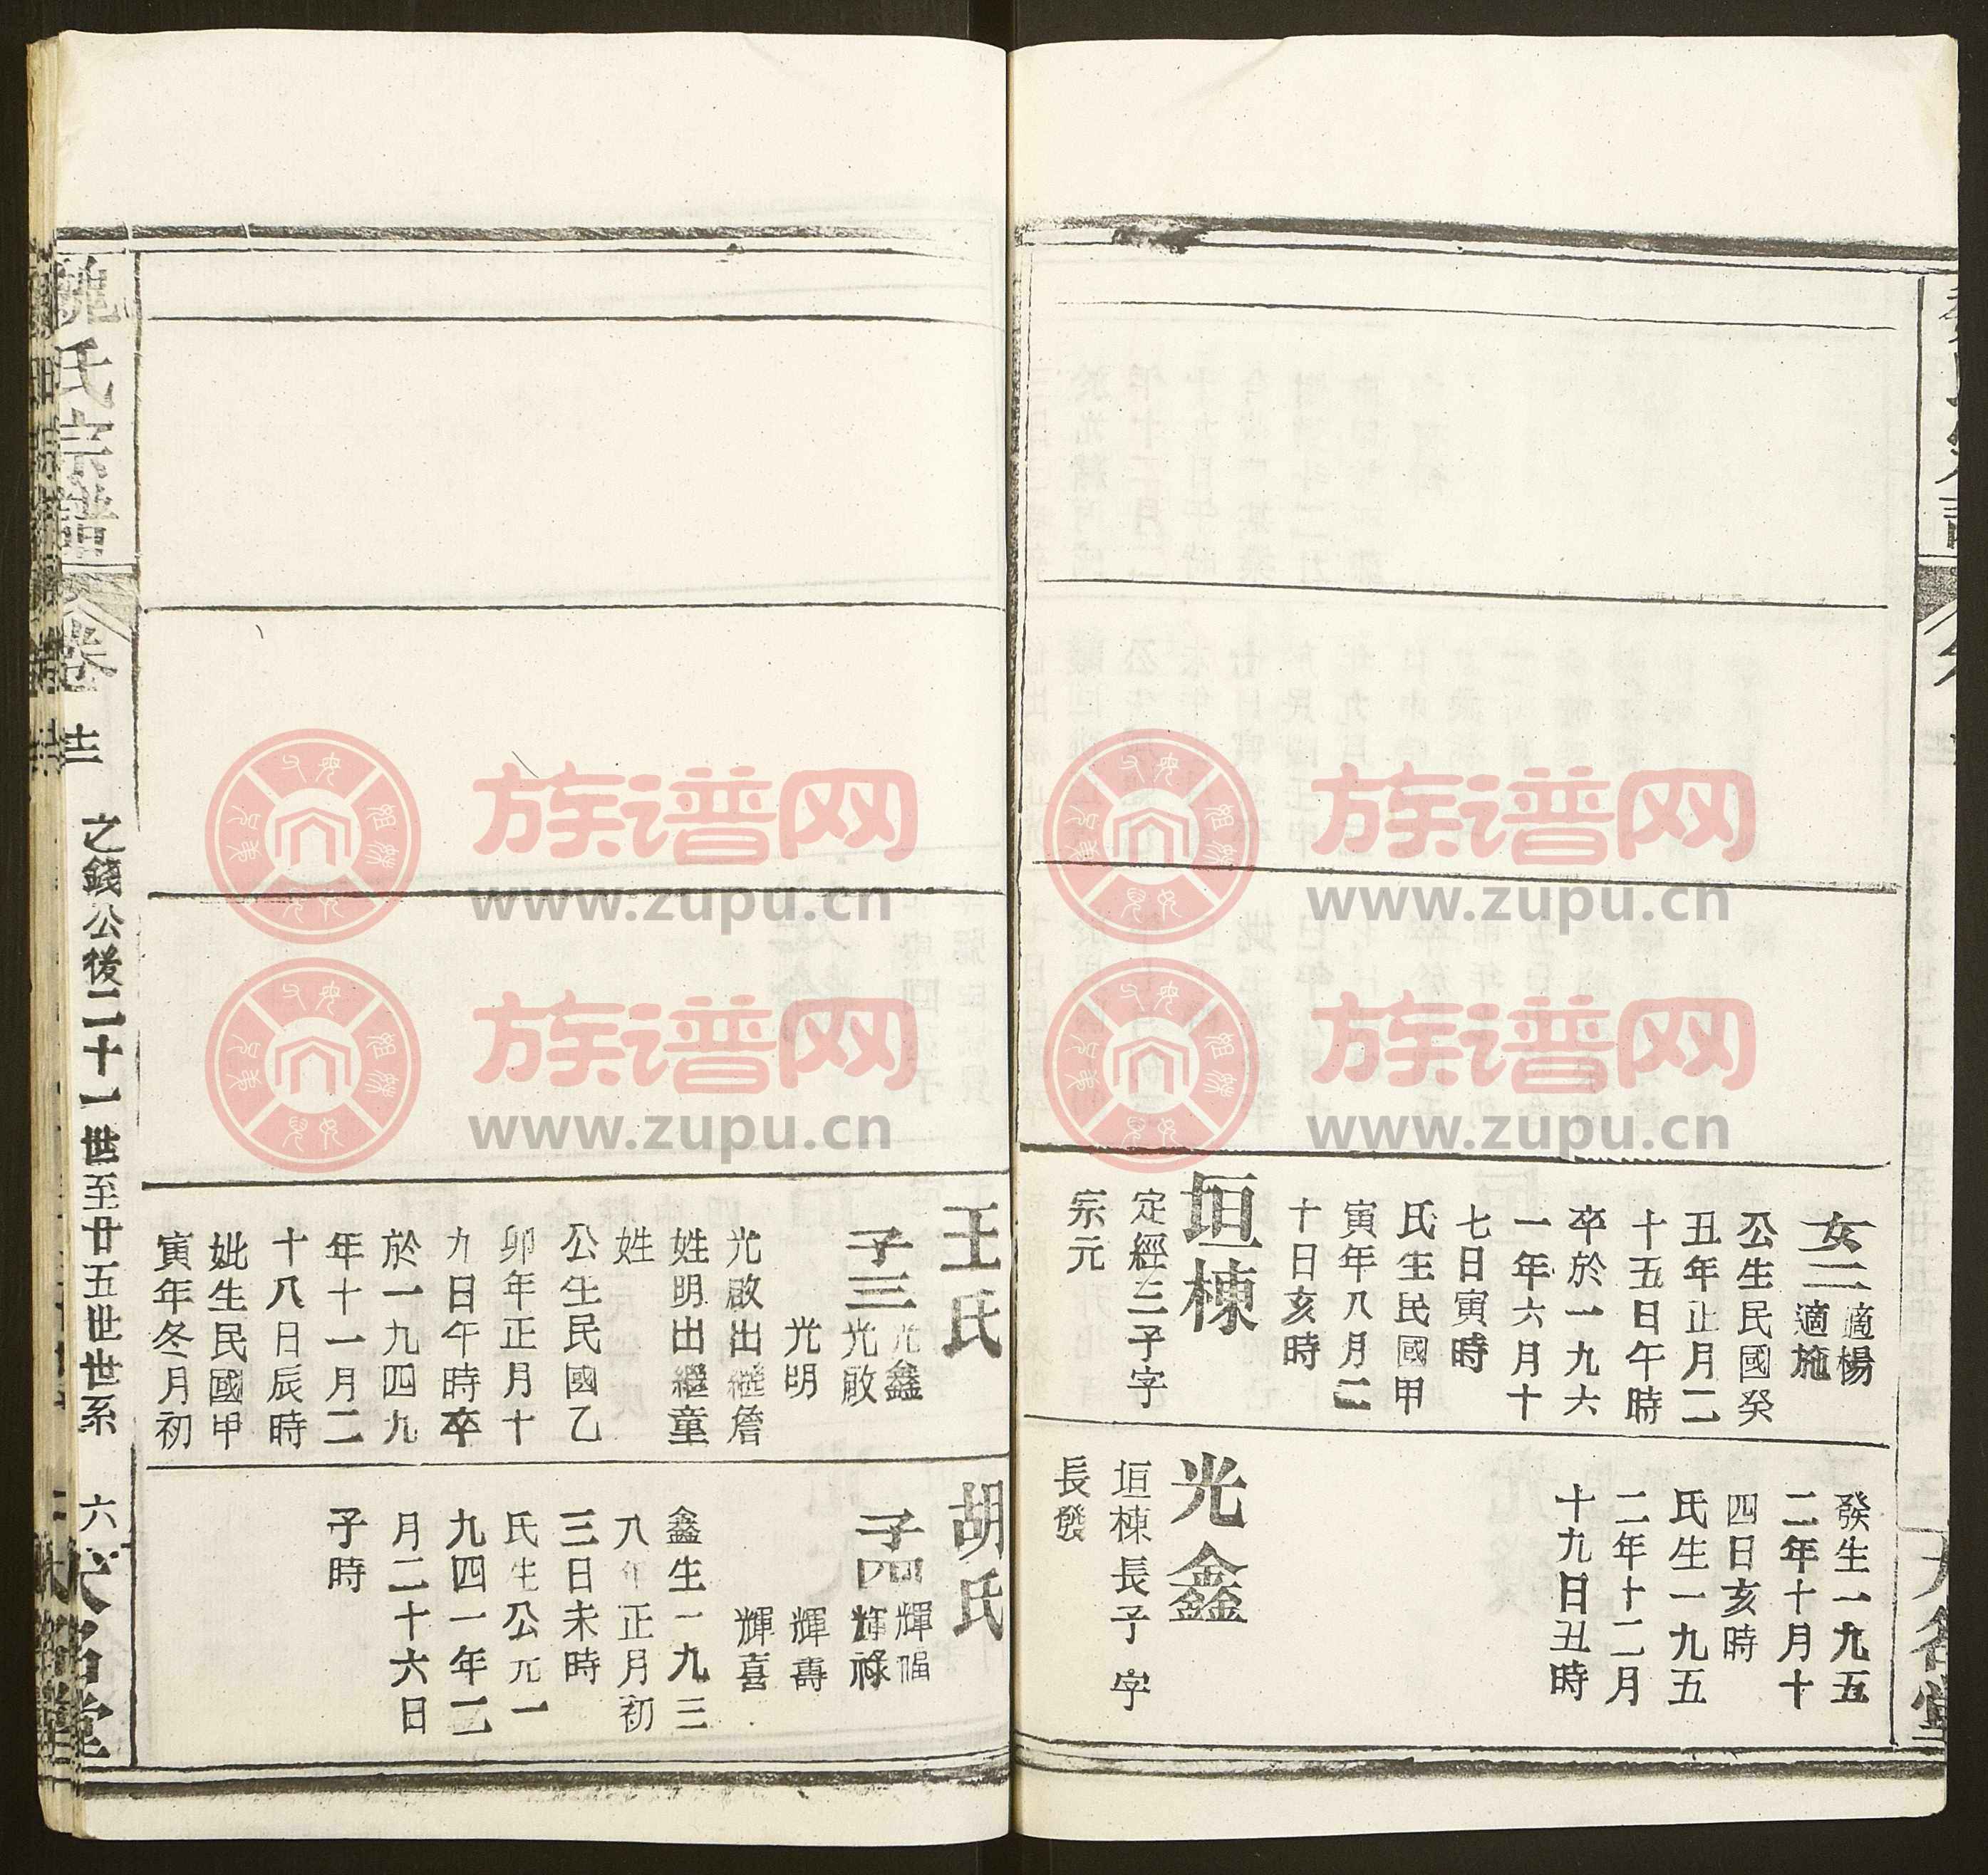 女二
適楊
適施
公生民國癸
丑年正月二
十五日午時
卒於一九六
一年六月十
七日寅時
氏生民國甲
寅年八月二
十日亥時
垣棟
定經三子字
宗元
發生一九五
二年十月十
四日亥時
氏生一九五
二年十二月
十九日丑時
光鑫
垣棟長子字
長發
王氏
子三
光鑫
光啟
光明
光啟出繼詹
姓明出繼童
姓
公生民國乙
卯年正月十
九日午時卒
於一九四九
年十一月二
十八日辰時
妣生民國甲
寅年冬月初
胡氏
子四
輝福
輝祿
輝壽
輝喜
鑫生一九三
八年正月初
三日未時
氏生公元一
九四一年二
月二十六日
子時
魏氏宗譜
卷
之錢公後二十一世至廿五世世系
六
大名堂
族谱网
www.zupu.cn
族谱网
www.zupu.cn
族谱网
www.zupu.cn
族谱网
www.zupu.cn